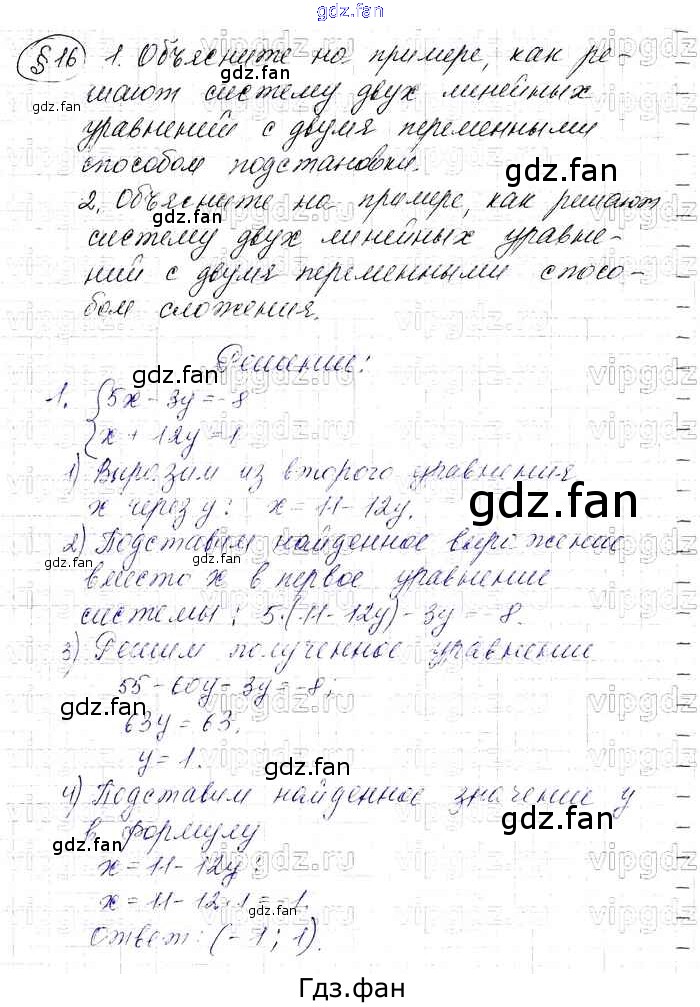 gdz.fan
§ 16 1. Объясните на примере, как ре-
шают систему двух линейных
уравнений с двумя переменными
способом подстановки.
2. Объясните на примере, как решают
систему двух линейных уравне-
ний с двумя переменными спосо-
бом сложения.
Решение:
1. {5x - 3y = -8
{x + 12y = 11
1) Выразим из второго уравнения
x через y: x = 11 - 12y.
2) Подставим найденное выражение
вместо x в первое уравнение
системы: 5·(11 - 12y) - 3y = -8.
3) Решим полученное уравнение
55 - 60y - 3y = -8;
63y = 63;
y = 1.
4) Подставим найденное значение y
в формулу
x = 11 - 12y:
x = 11 - 12·1 = -1.
Ответ: (-1; 1).
Гдз.фан